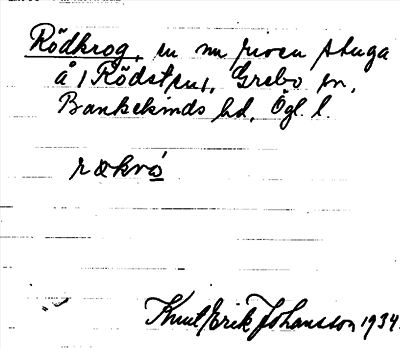 Rödkrog, en nu riven stuga
å 1 Rödsten, Grebo sn,
Bankekinds hd, Ögl. l.
Knut Erik Johansson 1934.